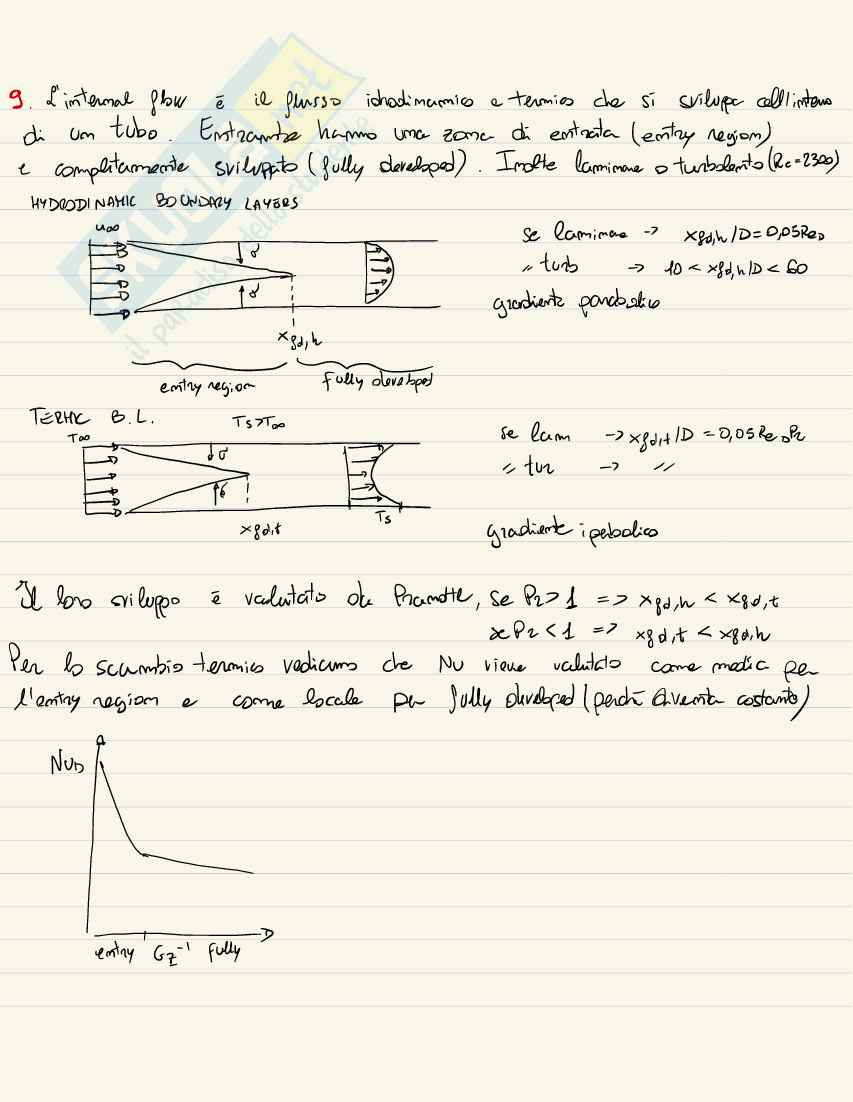 9. L'internal flow è il flusso idrodinamico e termico che si sviluppa all'interno
di un tubo. Entrambe hanno una zona di entrata (entry region)
e complitamente sviluppato (fully developed). Inoltre laminare o turbolento (Rc=2300)
HYDRODINAMIC BOUNDARY LAYERS
u∞
se laminare -> xfd,h/D=0,05ReD
δ
" turb -> 10 < xfd,h/D < 60
δ
gradiente parabolico
xfd,h
entry region fully developed
TERMIC B.L. Ts>T∞
T∞
se lam -> xfd,t/D = 0,05ReD Pr
δ
" tur -> "
δ
Ts
xfd,t
gradiente iperbolico
Il loro sviluppo è valutato da Prandtl, se Pr>1 => xfd,h < xfd,t
se Pr<1 => xfd,t < xfd,h
Per lo scambio termico vediamo che Nu viene valutato come media per
l'entry region e come locale per fully developed (perchè diventa costante)
NuD
entry Gz⁻¹ fully
SKUOLA.net
il paradiso dello studente